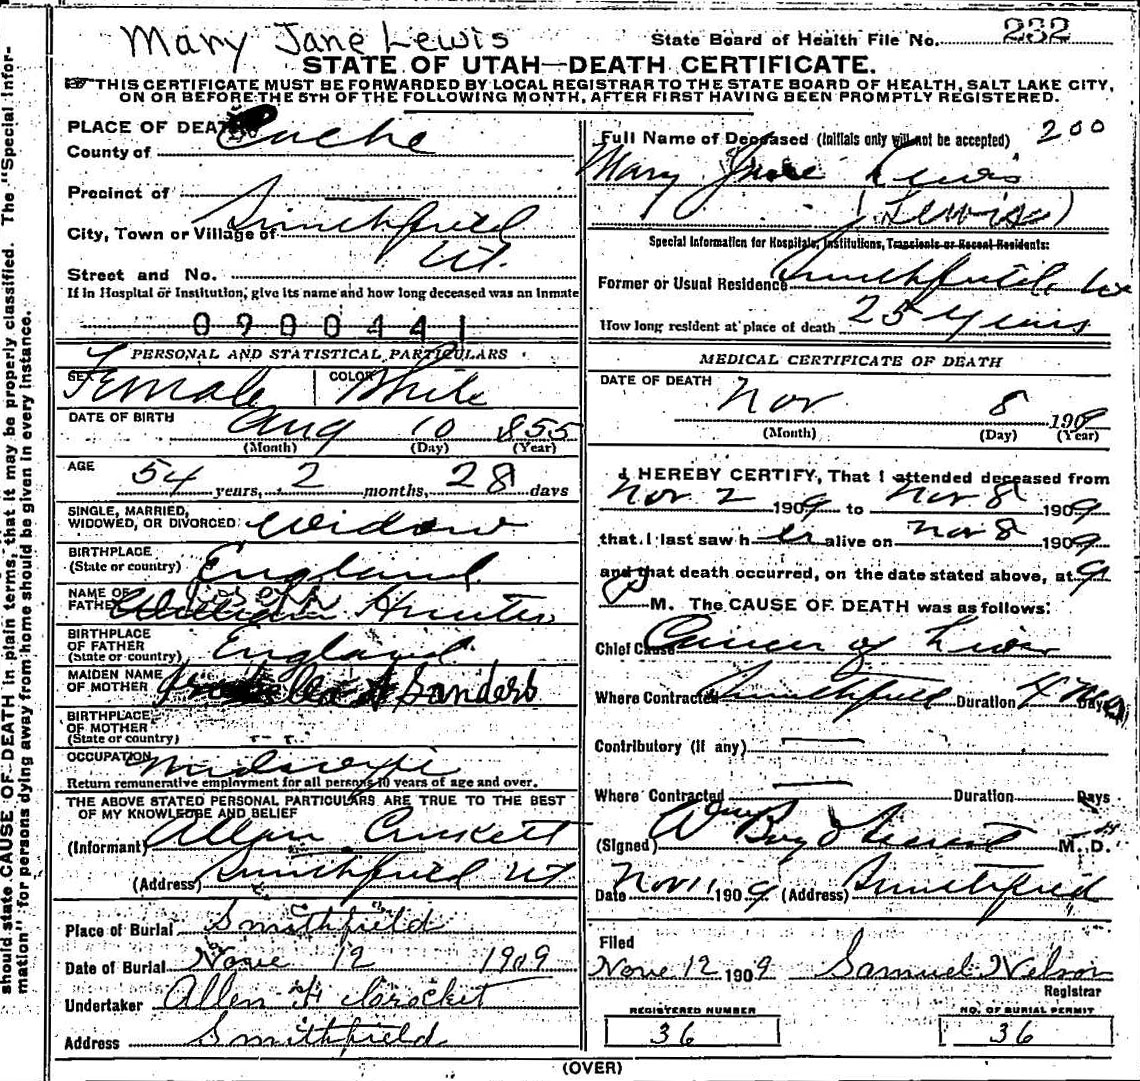 Mary Jane Lewis
State Board of Health File No. 232
STATE OF UTAH—DEATH CERTIFICATE.
THIS CERTIFICATE MUST BE FORWARDED BY LOCAL REGISTRAR TO THE STATE BOARD OF HEALTH, SALT LAKE CITY,
ON OR BEFORE THE 5TH OF THE FOLLOWING MONTH, AFTER FIRST HAVING BEEN PROMPTLY REGISTERED.
should state CAUSE OF DEATH in plain terms, that it may be properly classified. The "Special Infor-
mation" for persons dying away from home should be given in every instance.
PLACE OF DEATH
County of Cache
Precinct of
City, Town or Village of Smithfield
Ut.
Street and No.
If in Hospital or Institution, give its name and how long deceased was an inmate
0900441
PERSONAL AND STATISTICAL PARTICULARS
SEX Female COLOR White
DATE OF BIRTH Aug 10 1855
(Month) (Day) (Year)
AGE
54 years, 2 months, 28 days
SINGLE, MARRIED,
WIDOWED, OR DIVORCED widow
BIRTHPLACE
(State or country) England
NAME OF
FATHER Hunter
BIRTHPLACE
OF FATHER
(State or country) England
MAIDEN NAME
OF MOTHER Sanders
BIRTHPLACE
OF MOTHER
(State or country) - -
OCCUPATION Midwife
Return remunerative employment for all persons 10 years of age and over.
THE ABOVE STATED PERSONAL PARTICULARS ARE TRUE TO THE BEST
OF MY KNOWLEDGE AND BELIEF
(Informant) Allan Crockett
(Address) Smithfield Ut
Place of Burial Smithfield
Date of Burial Nove 12 1909
Undertaker Allen H Crocket
Address Smithfield
Full Name of Deceased (Initials only will not be accepted) 200
Mary Jane Lewis
(Lewis)
Special Information for Hospitals, Institutions, Transients or Recent Residents:
Former or Usual Residence Smithfield,
How long resident at place of death 25 years
MEDICAL CERTIFICATE OF DEATH
DATE OF DEATH
Nov 8 1909
(Month) (Day) (Year)
I HEREBY CERTIFY, That I attended deceased from
Nov 2 1909 to Nov 8 1909
that I last saw her alive on Nov 8 1909
and that death occurred, on the date stated above, at 9
M. The CAUSE OF DEATH was as follows:
Chief Cause Cancer of Liver
Where Contracted Smithfield Duration 4 Days
Contributory (if any)
Where Contracted Duration Days
(Signed) M. D.
Date Nov 11 1909 (Address) Smithfield
Filed
Nove 12 1909 Samuel Nelson
Registrar
REGISTERED NUMBER
36
NO. OF BURIAL PERMIT
36
(OVER)